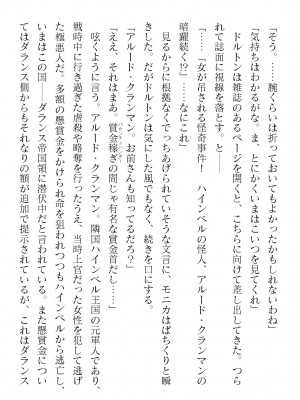 「そう。……腕くらいは折っておいてもよかったかもしれないわね」
「気持ちはわかるがな。ま、とにかくいまはこいつを見てくれ」
ドルトンは雑誌のあるページを開くと、こちらに向けて差し出してきた。つら
れて誌面に視線を落とす。と――
「……〝女が吊される怪奇事件！　ハインベルの怪人、アルード・クランマンの
暗躍続く!?〟……なにこれ」
見るからに根拠なくでっちあげられていそうな文言に、モニカはぱちくりと瞬
きした。だがドルトンは気にした風でもなく、続きを口にする。
「アルード・クランマン。お前さんも知ってるだろ？」
「ええ、それはまあ。賞金稼ぎの間じゃ有名な賞金首だし……」
呟くように言う。アルード・クランマン。隣国ハインベル王国の元軍人であり、
戦時中に行き過ぎた虐殺や略奪を行ったうえ、当時上官だった女性を犯して逃げ
た極悪人だ。多額の懸賞金をかけられ命を狙われつつもハインベルから逃亡し、
いまはこの国――ダランス帝国領に潜伏中だと言われている。また懸賞金につい
てはダランス側からもそれなりの額が追加で提示されているが、これはダランス